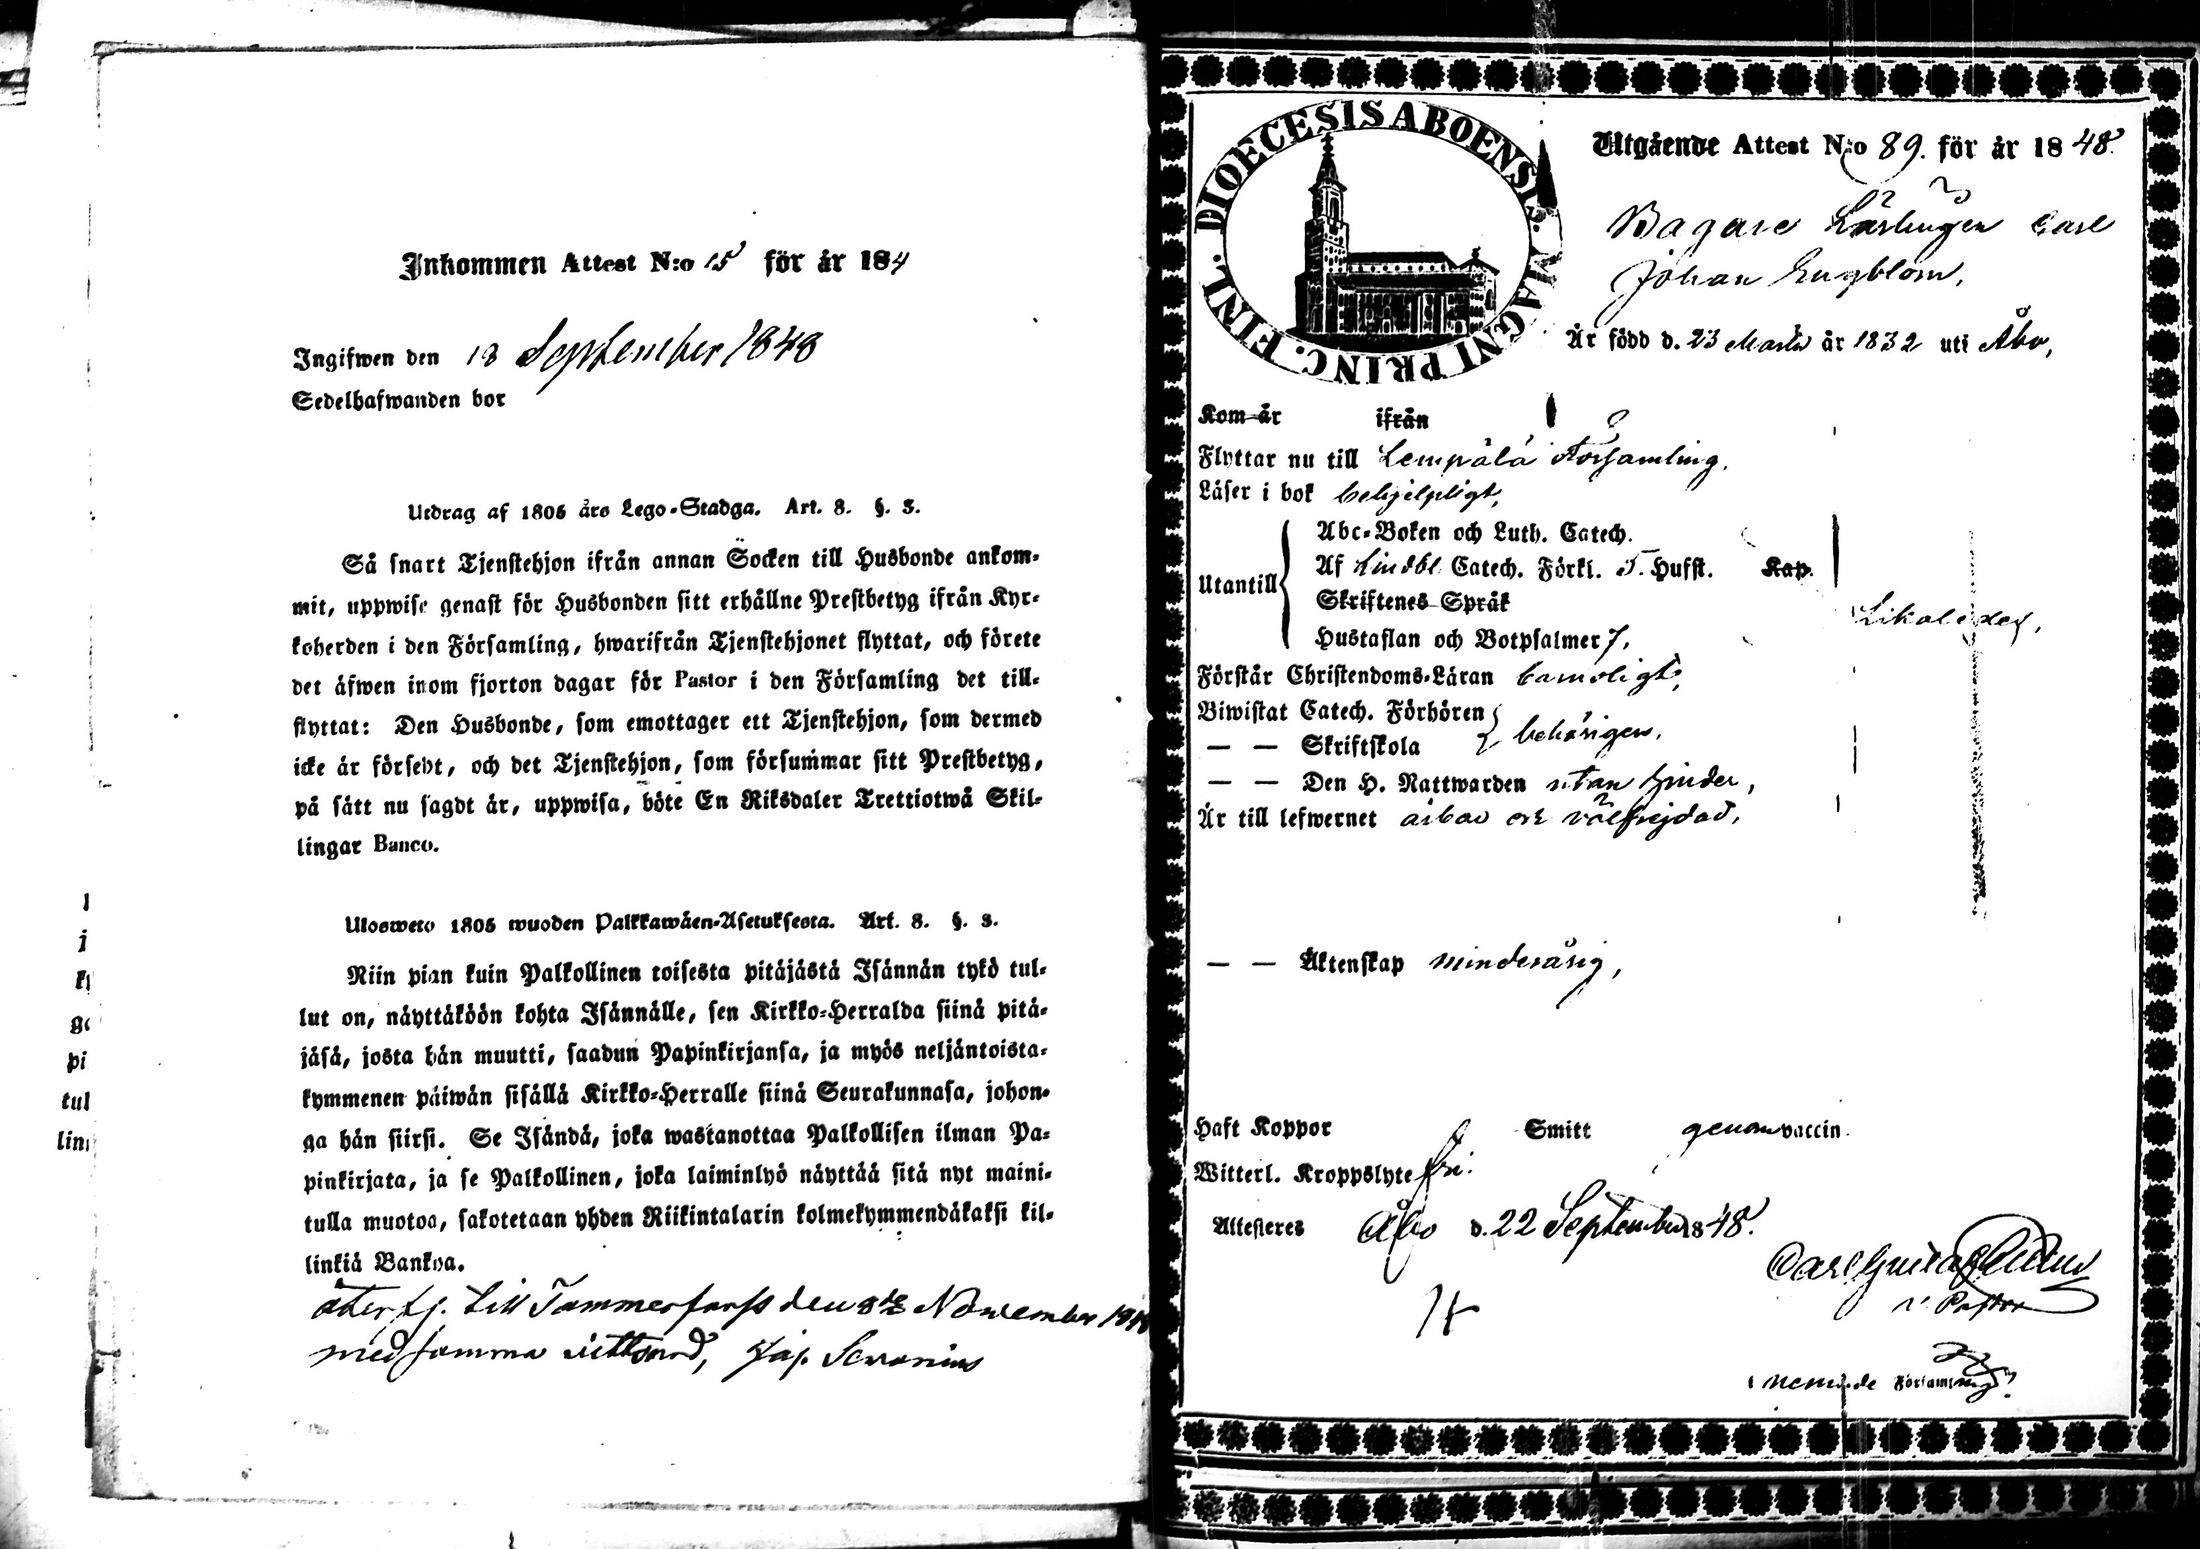 Inkommen Attest N:o 15 för år 184
Ingifwen den 18 September 1848
Sedelhafwanden bor
Utdrag af 1805 års Lego-Stadga. Art. 8. §. 3.
Så snart Tjenstehjon ifrån annan Socken till Husbonde ankom-
mit, uppwise genast för Husbonden sitt erhållne Prestbetyg ifrån Kyr-
koherden i den Församling, hwarifrån Tjenstehjonet flyttat, och förete
det äfwen inom fjorton dagar för Pastor i den Församling det till-
flyttat: Den Husbonde, som emottager ett Tjenstehjon, som dermed
icke är försedt, och det Tjenstehjon, som försummar sitt Prestbetyg,
på sätt nu sagdt är, uppwisa, böte En Riksdaler Trettiotwå Skil-
lingar Banco.
Ulosweto 1805 wuoden Palkkawäen-Asetuksesta. Art. 8. §. 3.
Niin pian kuin Palkollinen toisesta pitäjästä Isännän tykö tul-
lut on, näyttäköön kohta Isännälle, sen Kirkko-Herralda siinä pitä-
jäsä, josta hän muutti, saadun Papinkirjansa, ja myös neljäntoista-
kymmenen päiwän sisällä Kirkko-Herralle siinä Seurakunnasa, johon-
ga hän siirsi. Se Isändä, joka wastanottaa Palkollisen ilman Pa-
pinkirjata, ja se Palkollinen, joka laiminlyö näyttää sitä nyt maini-
tulla muotoa, sakotetaan yhden Riikintalarin kolmekymmendäkaksi kil-
linkiä Bankoa.
återfl. till Tammerforss den 8de November 1848
med samma vittsord,
DIOECESIS ABOENSIS. MAGNI PRINC. FINL.
Utgående Attest N:o 89. för år 1848.
Bagare Lärlingen Carl
Johan Engblom,
Är född d. 23 Martii år 1832 uti Åbo,
Kom år ifrån
Flyttar nu till Lempälä Församling,
Läser i bok behjelpligt,
Utantill
Abc-Boken och Luth. Catech.
Af Lindbl. Catech. Förkl. 5. Hufst. Kap.
Skriftenes Språk
Likaledes,
Hustaflan och Botpsalmer 7,
Förstår Christendoms-Läran barnsligt,
Biwistat Catech. Förhören
— — Skriftskola behörigen,
— — Den H. Nattwarden utan hinder,
Är till lefwernet ärbar och välfrejdad,
— — Äktenskap minderårig,
Haft Koppor Smitt genom vaccin.
Witterl. Kroppslyte fri.
Attesteres Åbo d. 22 September 1848.
Carl Gustaf
v. Pastor